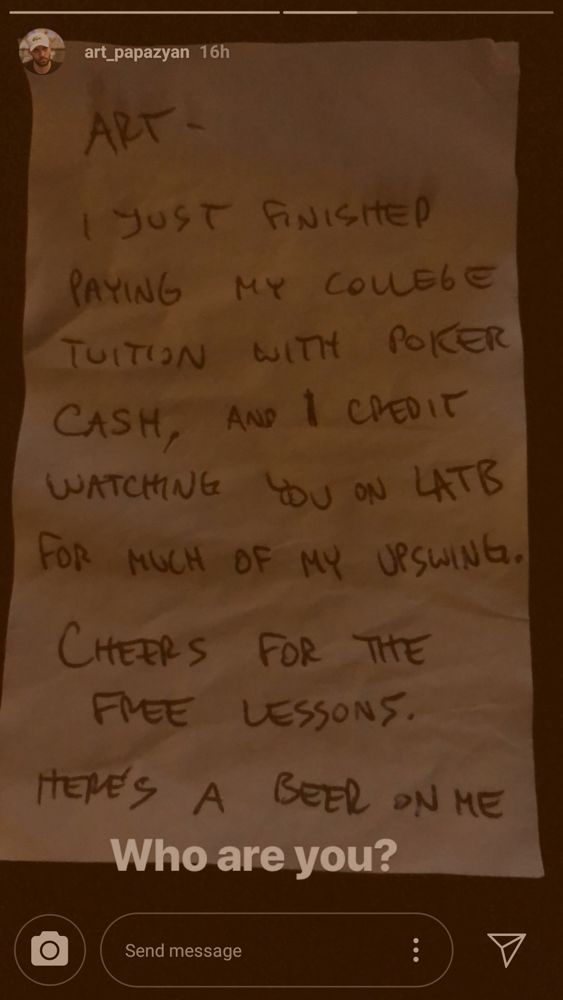 art_papazyan 16h
ART -
I JUST FINISHED
PAYING MY COLLEGE
TUITION WITH POKER
CASH, AND I CREDIT
WATCHING YOU ON LATB
FOR MUCH OF MY UPSWING.
CHEERS FOR THE
FREE LESSONS.
HERE'S A BEER ON ME
Who are you?
Send message